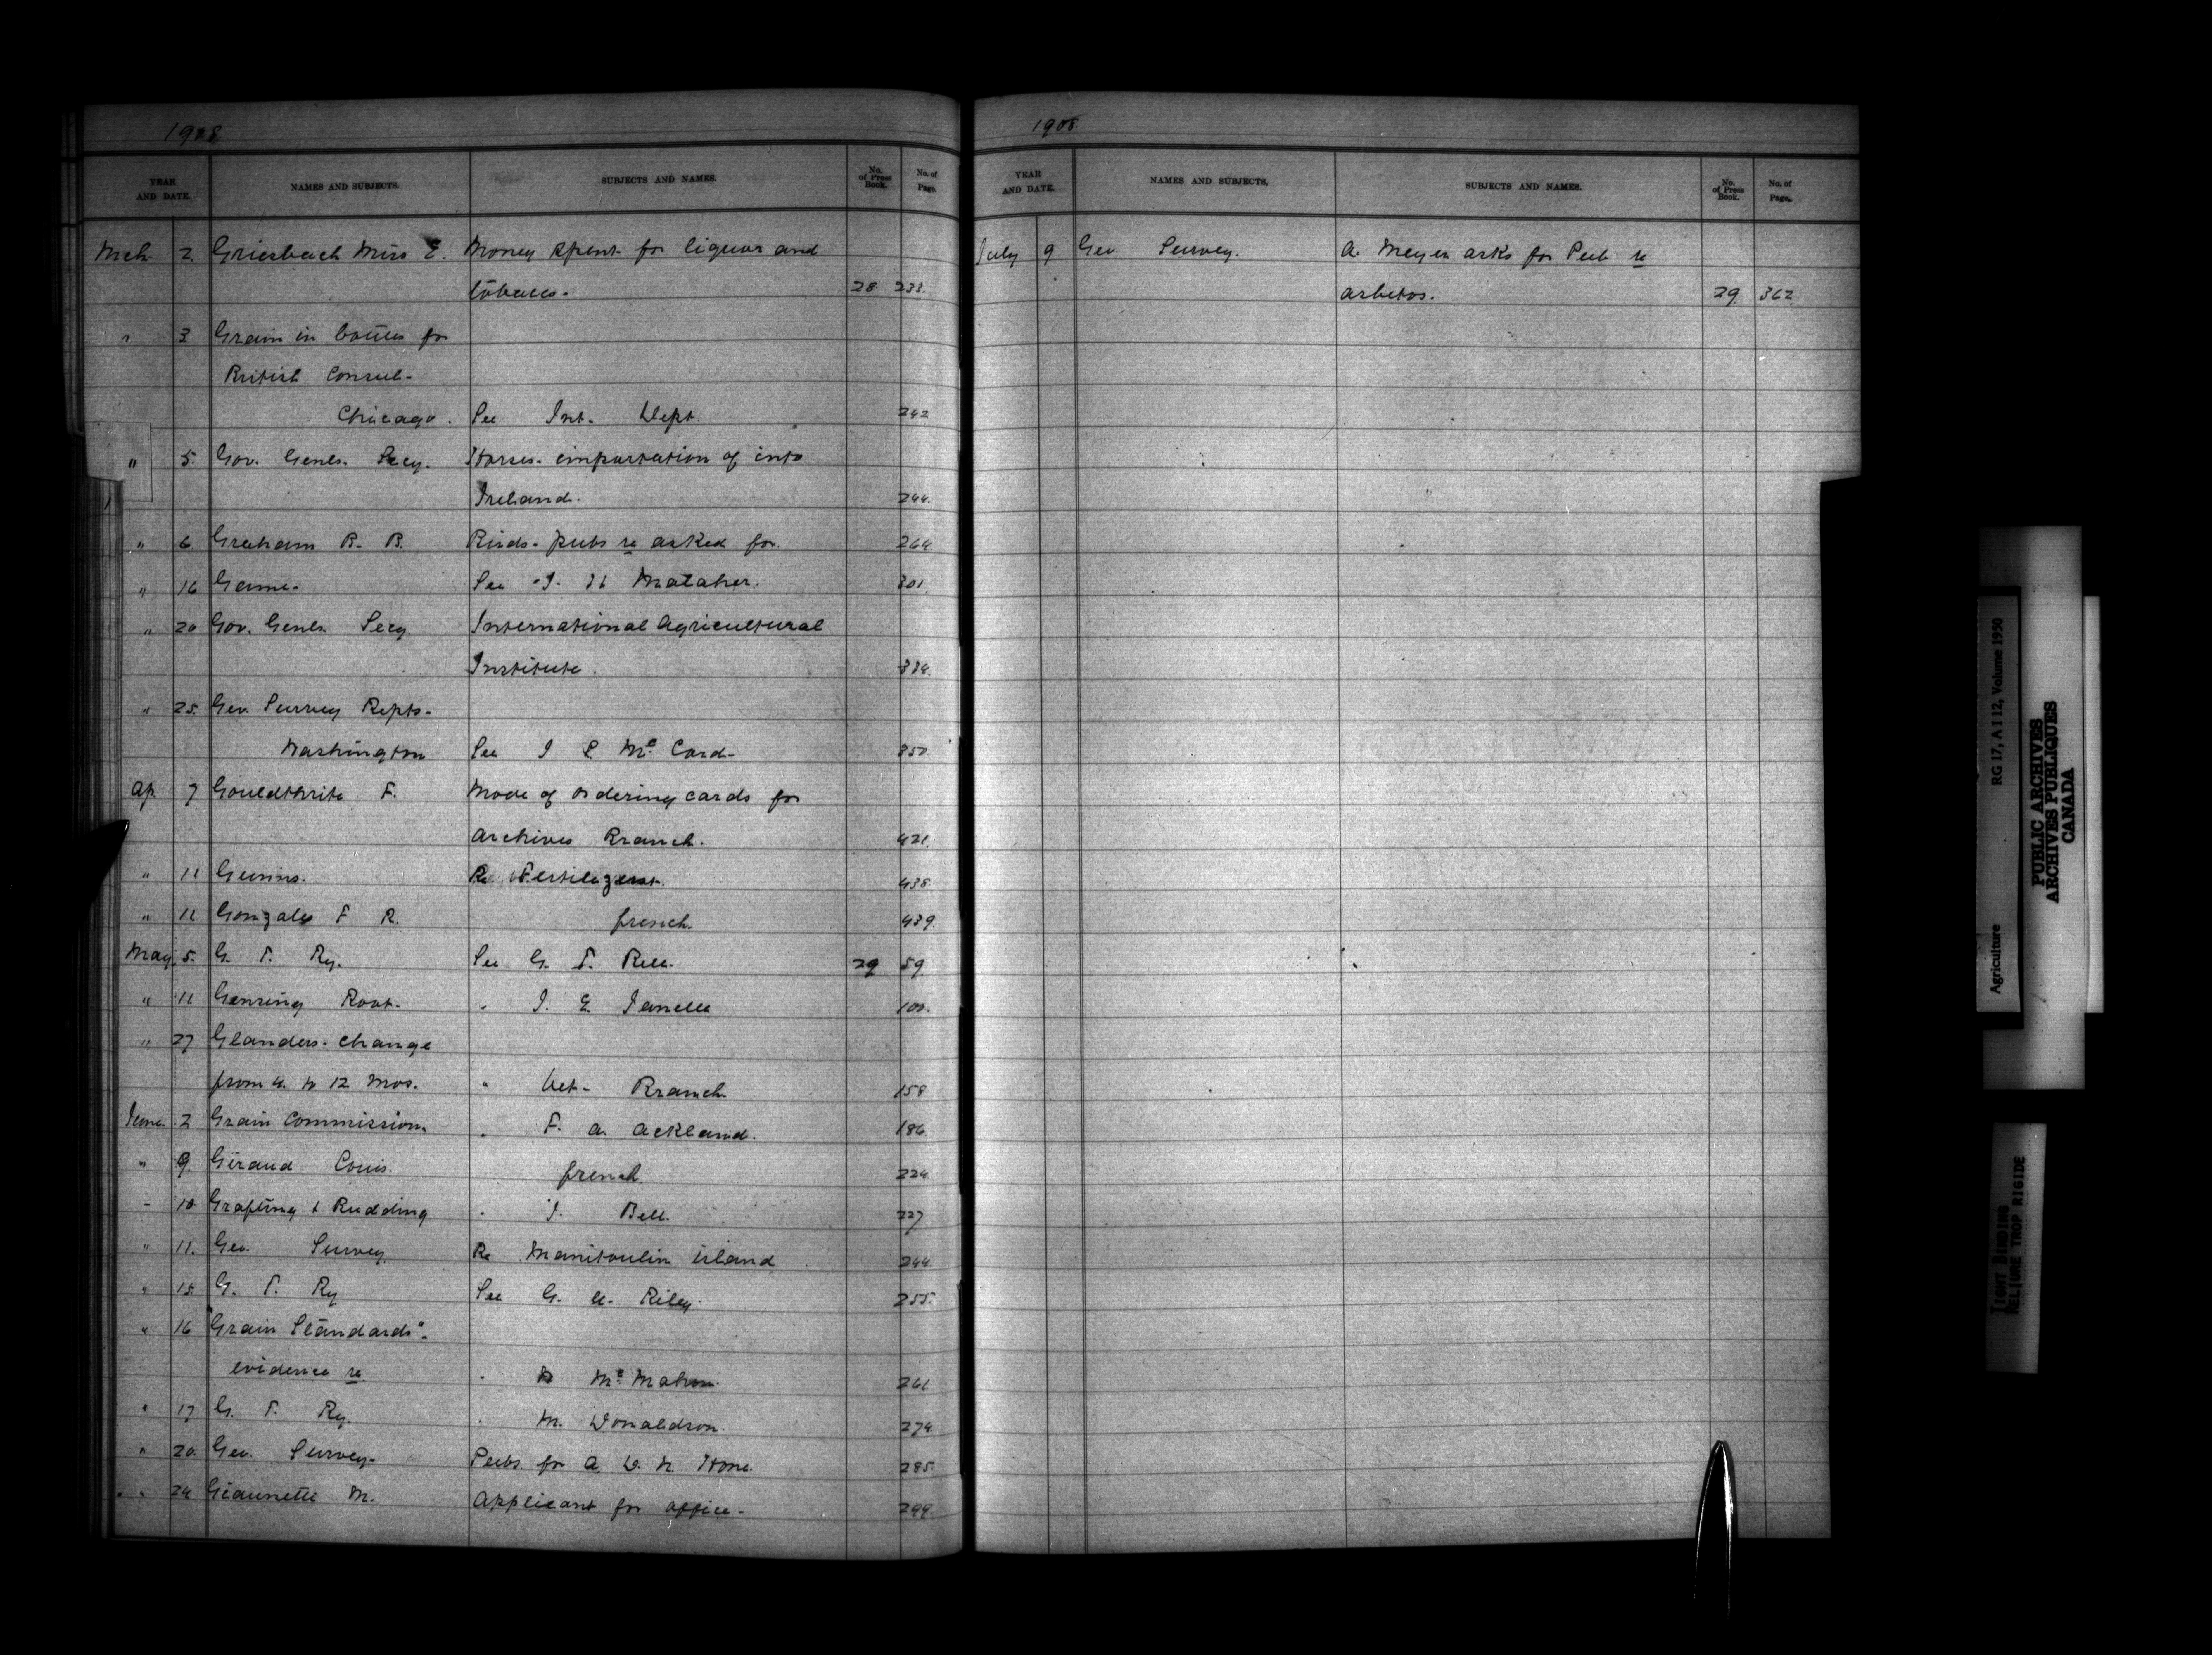 1908
YEAR AND DATE. NAMES AND SUBJECTS. SUBJECTS AND NAMES. No. of Press Book. No. of Page.
Mch 2 Griesbach Miss E. Money spent for liquor and
tobacco. 28 238.
" 3 Grain in bottles for
British Consul-
Chicago. See Int. Dept. 242
" 5. Gov. Genls. Secy. Horses-importation of into
Ireland. 244.
" 6 Graham R. B. Birds-pubs re asked for 264
" 16 Game. See J. H 301
" 20 Gov. Genls. Secy International Agricultural
Institute. 334.
" 25. Geo. Survey Repts-
Washington See J S Mc Cord- 350
Ap. 7 Gouldthrite F. Mode of ordering cards for
Archives Branch. 421.
" 11 Gunns. Re Fertilizers. 438
" 11 Gonzales F R. french. 439.
May 5. G. T. Ry. See G. T. Bell. 29 59
" 11 Genseng Root. " J. E. Janelle 100.
" 27 Glanders-change
from 6. to 12 Mos. " Vet- Branch 158
June 2 Grain Commission " F. A. Ackland. 186.
" 9. Giraud Louis. french 224
" 10 Grafting & Budding " J. Bell. 227
" 11. Geo. Survey Re Manitoulin island 244
" 15 G. T. Ry See G. A. Riley. 255.
" 16 "Grain Standards"-
evidence re. " Mc Mahon. 261
" 17 G. T. Ry. " M. Donaldson. 274
" 20. Geo. Survey- Pubs. for A. W. N. Hone. 285.
" 24 Giannetti M. Applicant for office- 299.
1908.
YEAR AND DATE. NAMES AND SUBJECTS. SUBJECTS AND NAMES. No. of Press Book. No. of Page.
July 9 Geo Survey. A. Meyer asks for Pub re
asbetos. 29. 362
Agriculture RG 17, A I 12, Volume 1950
PUBLIC ARCHIVES
ARCHIVES PUBLIQUES
CANADA
TIGHT BINDING
RELIURE TROP RIGIDE